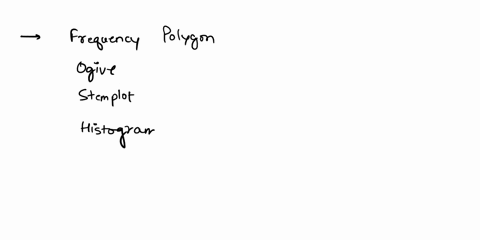 → Frequency Polygon
Ogive
Stemplot
Histogram